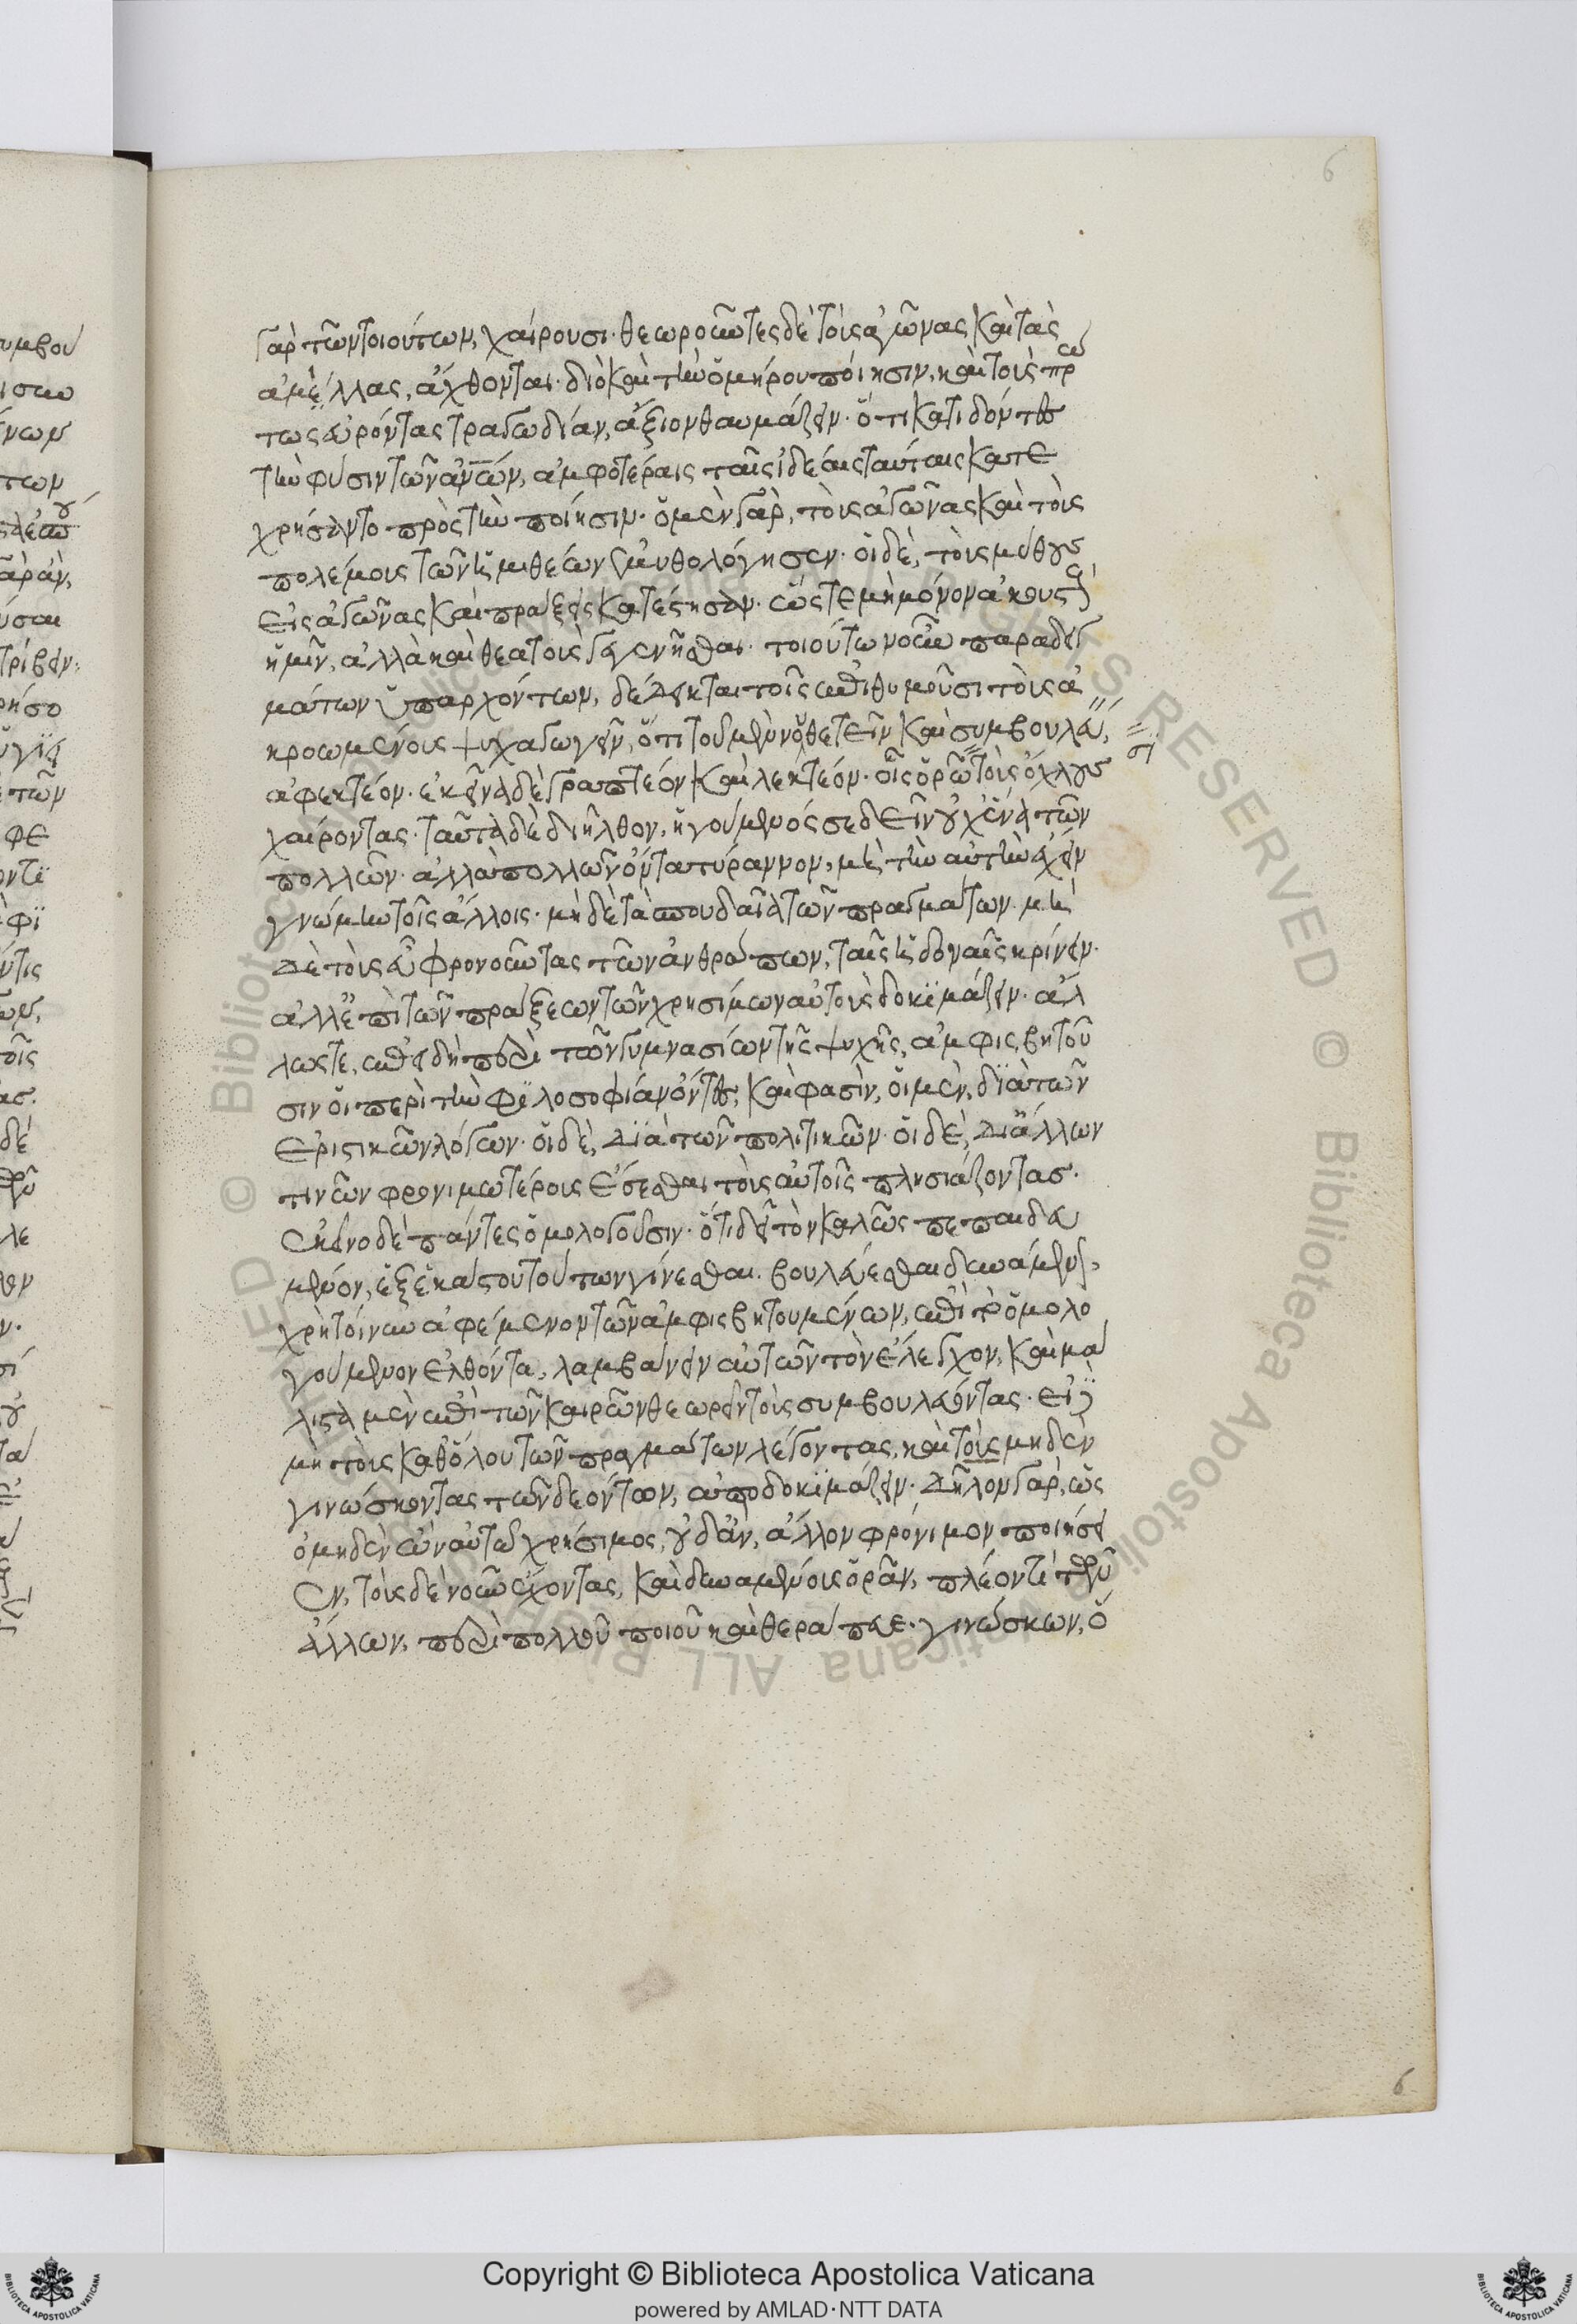 6
γὰρ τῶν τοιούτων, χαίρουσι· θεωροῦντες δὲ τοὺς ἀγῶνας καὶ τὰς
ἁμίλλας, ἄχθονται· διὸ καὶ τὴν ὁμήρου ποίησιν, καὶ τοὺς πρώ
τως εὑρόντας τραγωδίαν, ἄξιον θαυμάζειν· ὅτι κατιδόντες
τὴν φύσιν τῶν ἀνῶν, ἀμφοτέραις ταῖς ἰδέαις ταύταις κατε
χρήσαντο πρὸς τὴν ποίησιν· ὁ μὲν γὰρ, τοὺς ἀγῶνας καὶ τοὺς
πολέμους τῶν ἡμιθέων ἐμυθολόγησεν· οἱ δὲ, τοὺς μύθους
εἰς ἀγῶνας καὶ πράξεις κατέστησαν· ὥστε μὴ μόνον ἀκουστοὺς
ἡμῖν, ἀλλὰ καὶ θεατοὺς γενέσθαι· τοιούτων οὖν παραδειγ
μάτων ὑπαρχόντων, δέδεικται τοῖς ἐπιθυμοῦσι τοὺς ἀ
κροωμένους ψυχαγωγεῖν, ὅτι τοῦ μὲν νουθετεῖν καὶ συμβουλεύειν,
ἀφεκτέον· ἐκεῖνα δὲ γραπτέον καὶ λεκτέον· οἷς ὁρῶσι τοὺς ὄχλους
χαίροντας· ταῦτα δὲ διῆλθον, ἡγούμενός σε δεῖν οὐχ ἕνα τῶν
πολλῶν· ἀλλὰ πολλῶν ὄντα τύραννον, μὴ τὴν αὐτὴν ἔχειν
γνώμην τοῖς ἄλλοις· μὴ δὲ τὰ σπουδαῖα τῶν πραγμάτων· μὴ
δὲ τοὺς εὖ φρονοῦντας τῶν ἀνθρώπων, ταῖς ἡδοναῖς κρίνειν·
ἀλλ' ἐπὶ τῶν πράξεων τῶν χρησίμων αὐτοὺς δοκιμάζειν· ἄλ
λως τε, ἐπειδὴ περὶ τῶν γυμνασίων τῆς ψυχῆς, ἀμφισβητοῦ
σιν οἱ περὶ τὴν φιλοσοφίαν ὄντες, καὶ φασὶν, οἱ μὲν, διὰ τῶν
ἐριστικῶν λόγων· οἱ δὲ, διὰ τῶν πολιτικῶν· οἱ δὲ, δι' ἄλλων
τινῶν φρονιμωτέρους ἔσεσθαι τοὺς αὐτοῖς πλησιάζοντας·
ἐκεῖνο δὲ πάντες ὁμολογοῦσιν· ὅτι δεῖ τὸν καλῶς πεπαιδευ
μένον, ἐξ ἑκάστου τούτων γίνεσθαι βουλεύεσθαι δυνάμενον·
χρὴ τοίνυν ἀφέμενον τῶν ἀμφισβητουμένων, ἐπὶ τὸ ὁμολο
γούμενον ἐλθόντα, λαμβάνειν αὐτῶν τὸν ἔλεγχον, καὶ μά
λιστα μὲν ἐπὶ τῶν καιρῶν θεωρεῖν τοὺς συμβουλεύοντας· εἰ δὲ
μὴ τοὺς καθόλου τῶν πραγμάτων λέγοντας, καὶ τοὺς μηδὲν
γινώσκοντας τῶν δεόντων, ἀποδοκιμάζειν· δῆλον γὰρ, ὡς
ὁ μηδὲν ὢν αὐτῷ χρήσιμος, οὐδ' ἂν, ἄλλον φρόνιμον ποιήσει
εν, τοὺς δὲ νοῦν ἔχοντας, καὶ δυναμένους ὁρᾶν, πλέον τι τῶν
ἄλλων, περὶ πολλοῦ ποιοῦ καὶ θεράπευε· γινώσκων, ὅ
6
Copyright © Biblioteca Apostolica Vaticana
powered by AMLAD·NTT DATA